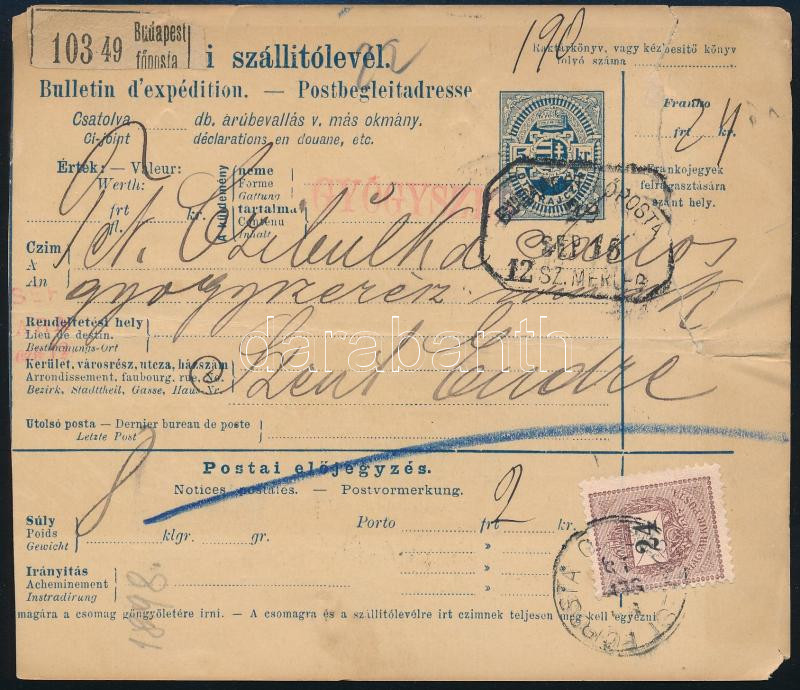 103 49 Budapest főposta
i szállitólevél.
190
Raktárkönyv, vagy kézbesitő könyv
folyó száma
Bulletin d'expédition. — Postbegleitadresse
Csatolva db. árúbevallás v. más okmány.
Ci-joint déclarations en douane, etc.
Franko
frt 24 kr.
Frankojegyek
felragasztására
szánt hely.
Érték: — Valeur:
Werth:
frt kr.
fl.
A küldemény
neme
Forme
Gattung
tartalma
Contenu
Inhalt
GYÓGYSZE
5 kr.
SEP 16
12 SZ. MERL-P.
Czim
A
An
gyógyszerész
Rendeltetési hely
Lieu de destin.
Bestimmungs-Ort
Kerület, városrész, utcza, házszám
Arrondissement, faubourg, rue, No.
Bezirk, Stadttheil, Gasse, Haus-Nr.
Szent Endre
Utolsó posta — Dernier bureau de poste
Letzte Post
Postai előjegyzés.
Notices postales. — Postvormerkung.
Súly
Poids
Gewicht
8 klgr. gr.
Porto frt 2 kr.
24
Irányitás
Acheminement
Instradirung
1898.
magára a csomag göngyöletére irni. — A csomagra és a szállitólevélre irt czimnek teljesen meg kell egyezni
darabanth